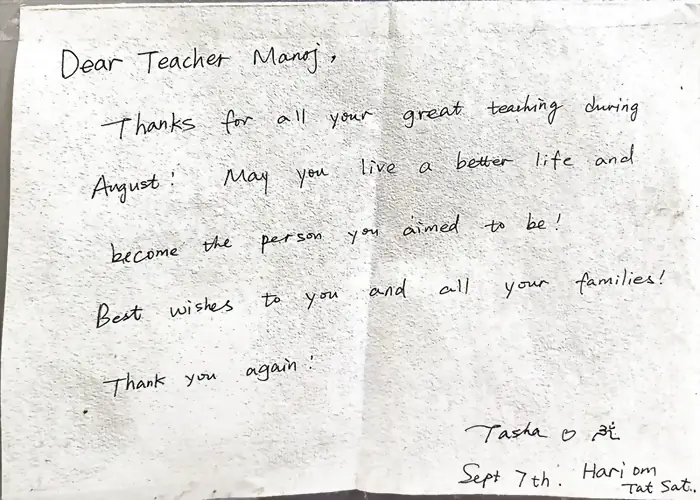 Dear Teacher Manoj,
Thanks for all your great teaching during
August! May you live a better life and
become the person you aimed to be!
Best wishes to you and all your families!
Thank you again!
Tasha
Sept 7th. Hari om
Tat Sat..